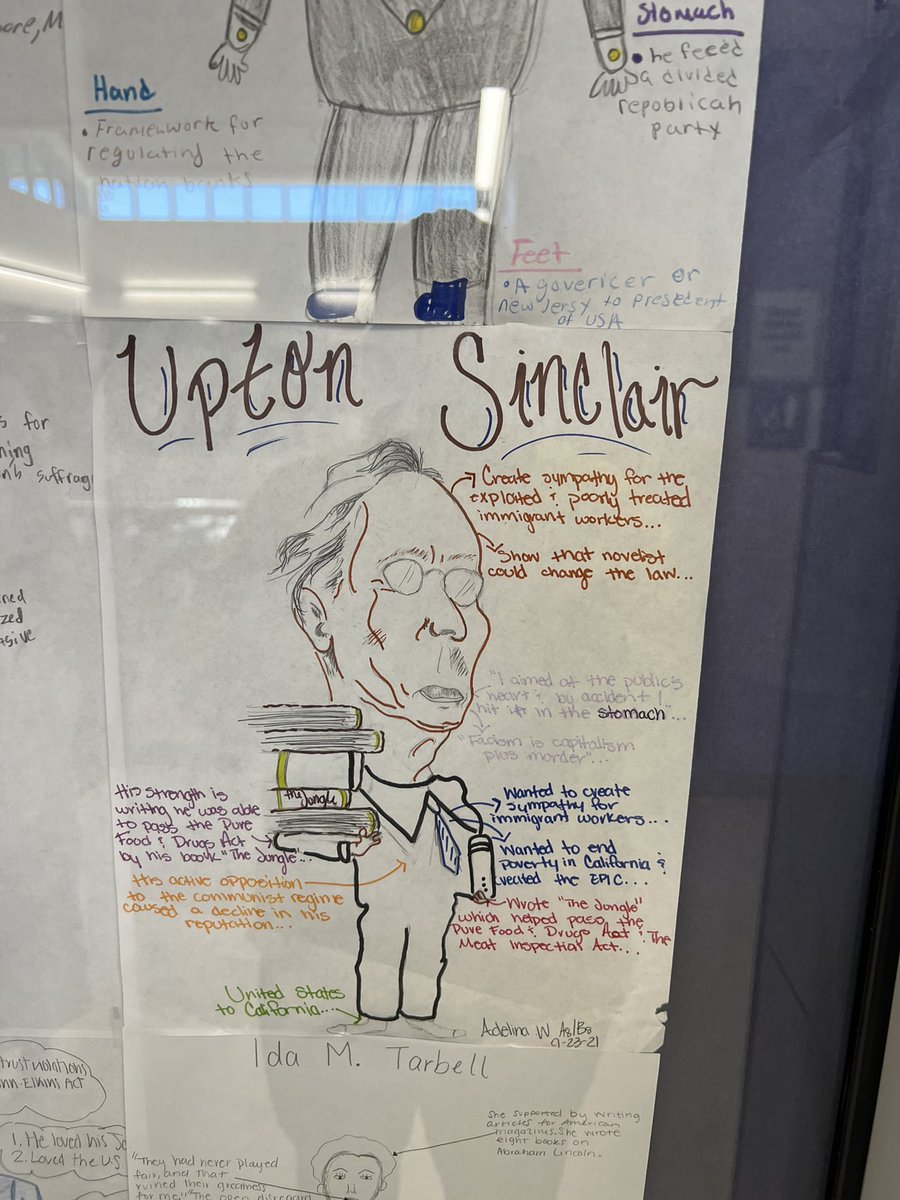 ore, M
Stomach
• he feeed
a divided
repoblican
party
Hand
• Framenwork for
regulating the
nation banks
Feet
• A govericer or
new Jersy to presedent
of USA
Upton Sinclair
s for
ning
suffrag
ned
zed
asive
Create sympathy for the
exploited & poorly treated
immigrant workers...
Show that novelist
could change the law...
"I aimed at the public's
heart & by accident I
hit it in the stomach"...
"Facism is capitalism
plus murder"...
The Jungle
His strength is
writing he was able
to pass the Pure
Food & Drugs Act
by his book "The Jungle"...
His active opposition
to the communist regime
caused a decline in his
reputation...
Wanted to create
sympathy for
immigrant workers...
Wanted to end
poverty in California &
created the EPIC...
Wrote "The Jungle"
which helped pass the
Pure Food & Drugs Act & The
Meat Inspectial Act...
United States
to California...
Adelina W A8/B8
9-23-21
Ida M. Tarbell
trust violations
nn-Elkins ACT
1. He loved his
2. Loved the U.S
She supported by writing
articles for American
magazines. She wrote
eight books on
Abraham Lincoln.
"They had never played
fair, and that
ruined their greatness
for me." "The open disregard